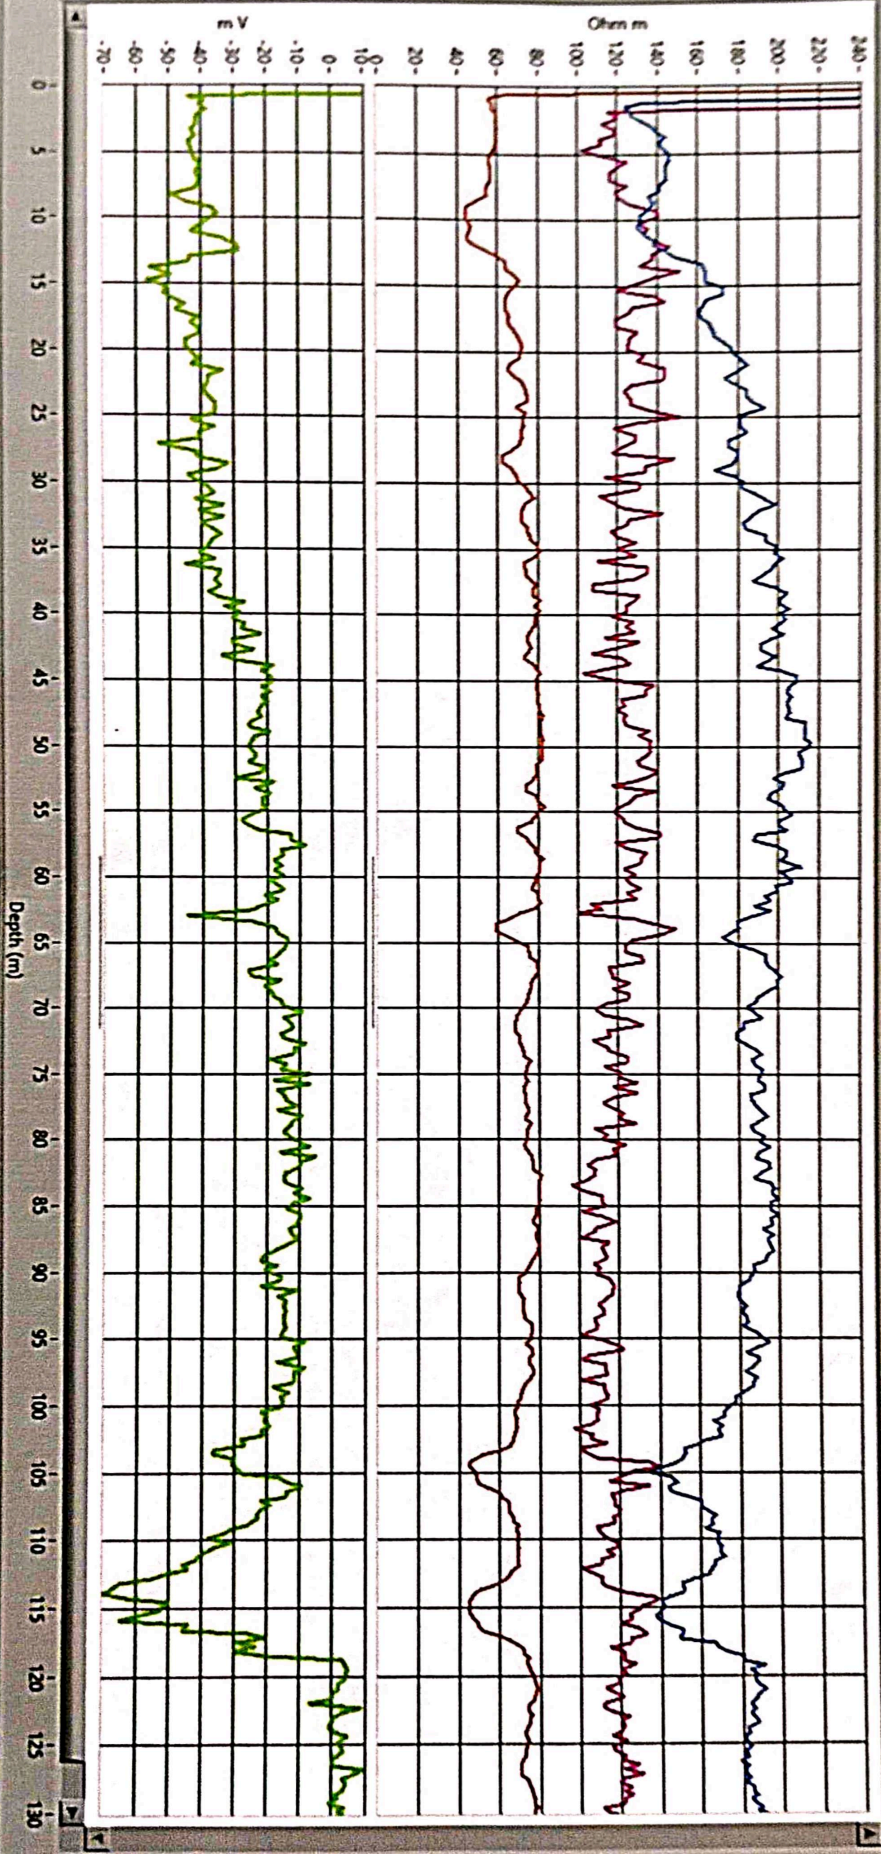 mV
-70- -60- -50- -40- -30- -20- -10- 0- 10-
Ohm m
0- 20- 40- 60- 80- 100- 120- 140- 160- 180- 200- 220- 240-
0 5 10 15 20 25 30 35 40 45 50 55 60 65 70 75 80 85 90 95 100 105 110 115 120 125 130
Depth (m)